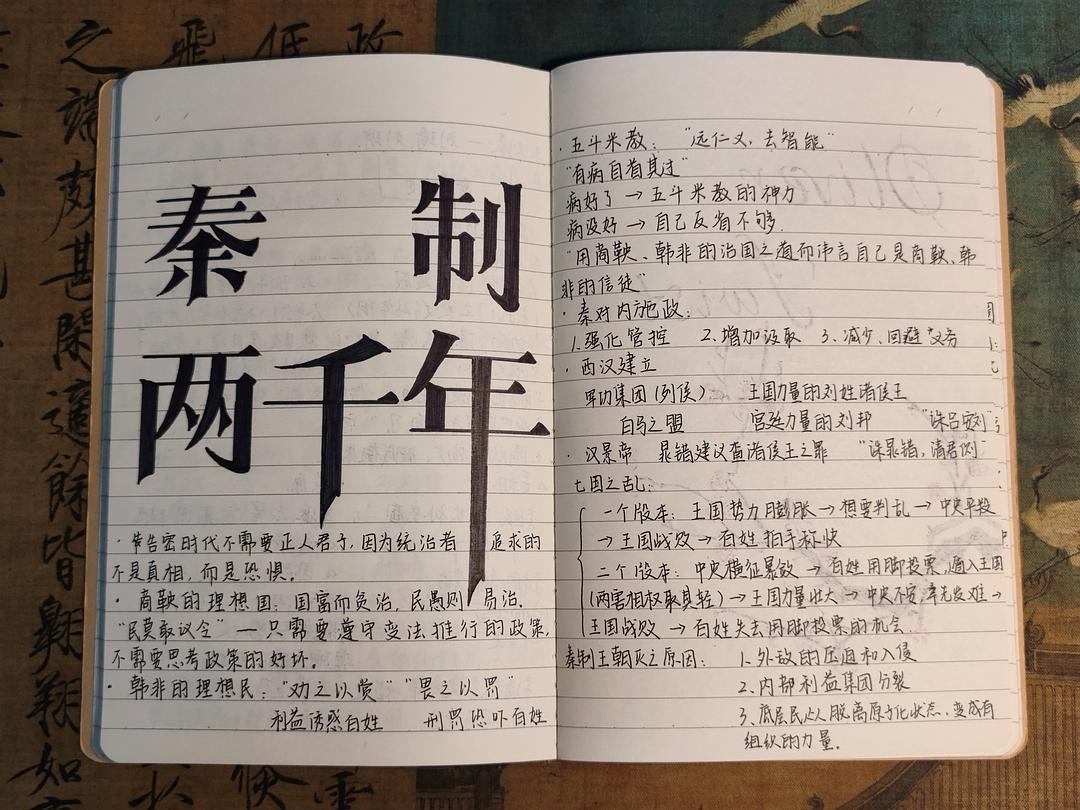 秦制
两千年
· 告密时代不需要正人君子,因为统治者追求的
不是真相,而是恐惧。
· 商鞅的理想国:国富而贫治,民愚则易治.
"民莫敢议令" — 只需要遵守变法推行的政策,
不需要思考政策的好坏.
· 韩非的理想民:"劝之以赏" "畏之以罚"
利益诱惑百姓 刑罚恐吓百姓
· 五斗米教: "远仁义,去智能"
"有病自首其过"
病好了 → 五斗米教的神力
病没好 → 自己反省不够.
"用商鞅、韩非的治国之道而讳言自己是商鞅、韩
非的信徒"
· 秦对内施政:
1.强化管控 2.增加汲取 3.减少、回避义务
· 西汉建立
军功集团(列侯) 王国力量的刘姓诸侯王
白马之盟 宫廷力量的刘邦 "诛吕安刘"
· 汉景帝 晁错建议查诸侯王之罪 "诛晁错,清君侧"
七国之乱:
一个版本:王国势力膨胀 → 想要判乱 → 中央平叛
→ 王国战败 → 百姓拍手称快
二个版本:中央横征暴敛 → 百姓用脚投票,遁入王国
(两害相权取其轻) → 王国力量壮大 → 中央不安,率先发难 →
王国战败 → 百姓失去用脚投票的机会
秦制王朝灭亡原因: 1.外敌的压迫和入侵
2.内部利益集团分裂
3.底层民众脱离原子化状态,变成有
组织的力量.
之
端
甚
闲
适
余
皆
翱
翔
如
飞
低